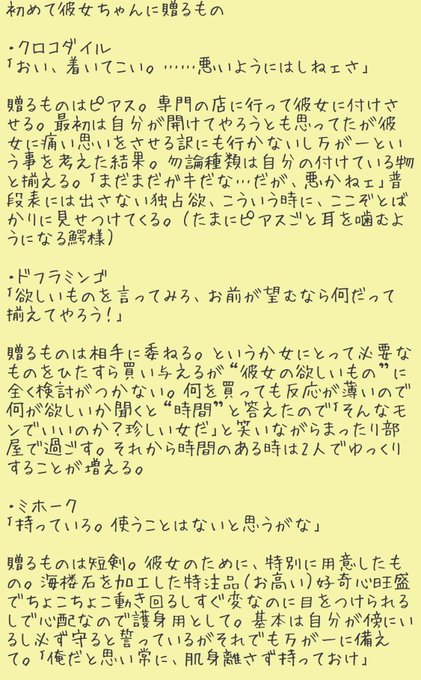 初めて彼女ちゃんに贈るもの
・クロコダイル
「おい、着いてこい。……悪いようにはしねェさ」
贈るものはピアス。専門の店に行って彼女に付けさ
せる。最初は自分が開けてやろうとも思ってたが彼女
に痛い思いをさせる訳にも行かないし万が一とい
う事を考えた結果。勿論種類は自分の付けている物
と揃える。「まだまだガキだな…だが、悪かねェ」普
段表には出さない独占欲、こういう時に、ここぞとば
かりに見せつけてくる。(たまにピアスごと耳を噛むよ
うになる鰐様)
・ドフラミンゴ
「欲しいものを言ってみろ、お前が望むなら何だって
揃えてやろう!」
贈るものは相手に委ねる。というか女にとって必要な
ものをひたすら買い与えるが“彼女の欲しいもの”に
全く検討がつかない。何を買っても反応が薄いので
何が欲しいか聞くと“時間”と答えたので「そんなモ
ンでいいのか?珍しい女だ」と笑いながらまったり部
屋で過ごす。それから時間のある時は2人でゆっくり
することが増える。
・ミホーク
「持っていろ。使うことはないと思うがな」
贈るものは短剣。彼女のために、特別に用意したも
の。海楼石を加工した特注品(お高い)好奇心旺盛
でちょこちょこ動き回るしすぐ変なのに目をつけられる
しで心配なので護身用として。基本は自分が傍にい
るし必ず守ると誓っているがそれでも万が一に備え
て。「俺だと思い常に、肌身離さず持っておけ」